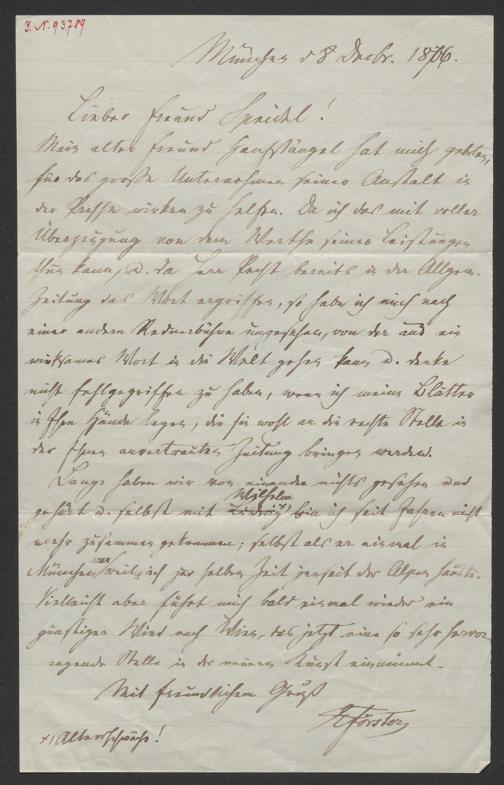 J. N. 93,789
München d 8 Decbr. 1876.
Lieber Freund Speidel!
Mein alter Freund Hanfstängel hat mich gebeten,
für das große Unternehmen seiner Anstalt in
der Presse wirken zu helfen. Da ich das mit voller
Überzeugung von dem Werthe seiner Leistungen
thun kann, u. da Herr Pecht bereits in der Allgem.
Zeitung das Wort ergriffen, so habe ich mich nach
einer andern Rednerbühne umgesehen, von der aus ein
wirksames Wort in die Welt gehen kann u. denke
nicht fehlgegriffen zu haben, wenn ich meine Blätter
in Ihre Hände lege, die sie wohl an die rechte Stelle in
der Ihnen anvertrauten Zeitung bringen werden.
Lange haben wir von einander nichts gesehen und
Wilhelm
gehört u. selbst mit Ludwig x) bin ich seit Jahren nicht
mehr zusammen gekommen; selbst als er einmal in
München war, weil ich zur selben Zeit jenseit der Alpen
Vielleicht aber führt mich bald einmal wieder ein
günstiger Wind nach Wien, das jetzt eine so sehr hervor
ragende Stelle in der neuern Kunst einnimmt.
Mit freundlichem Gruß
Förster
x) Altersschwäche!